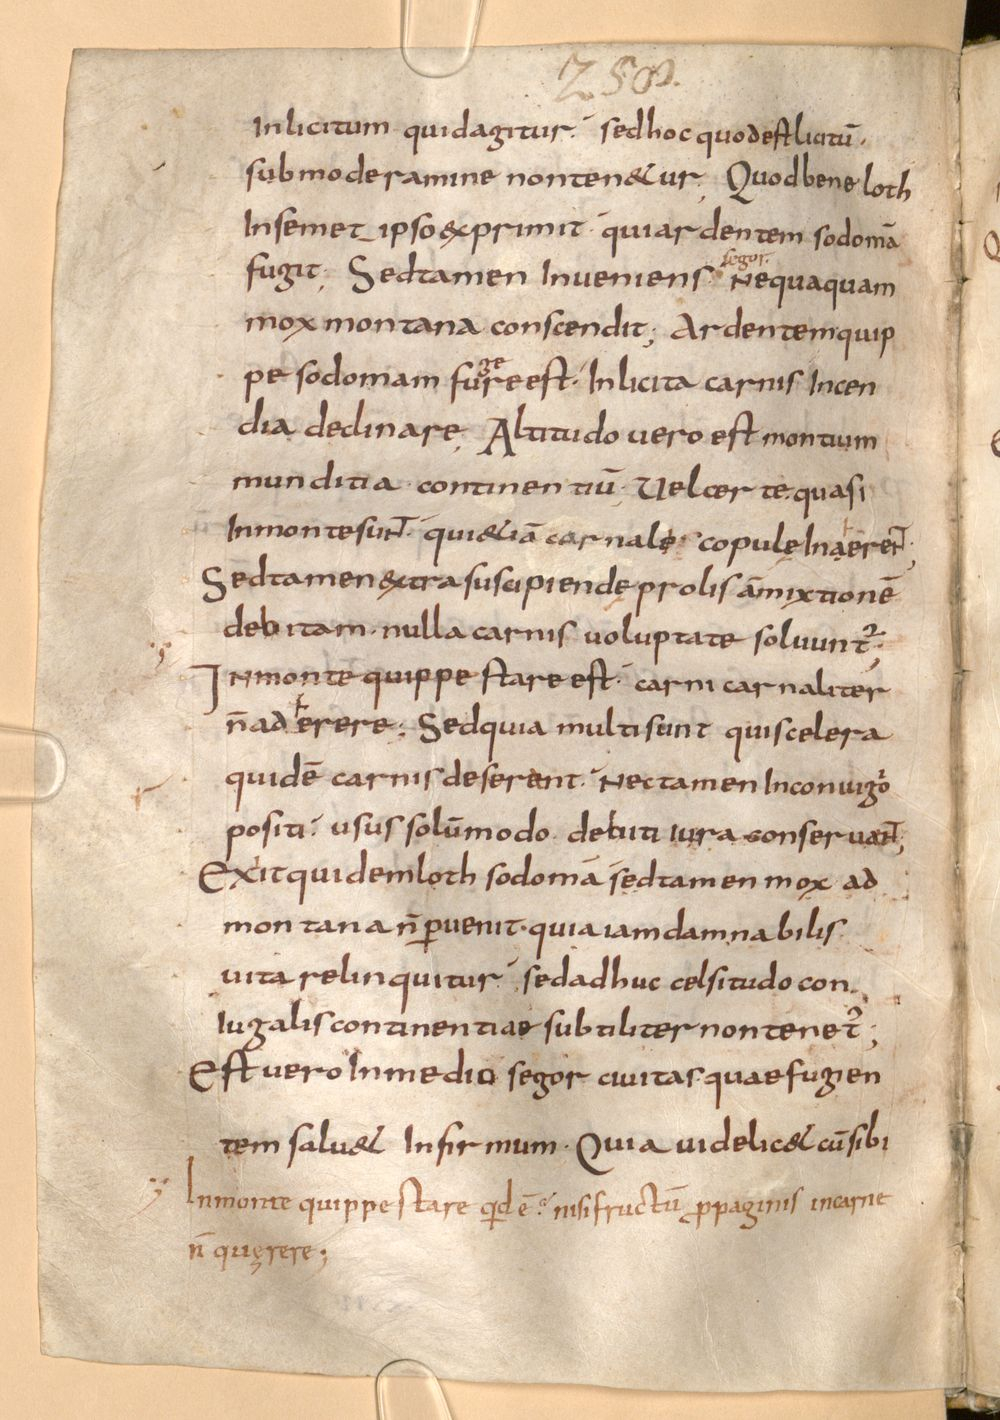 250.
Inlicitum quidagitur. sedhoc quodestlicitū.
submoderamine nonten&ur; Quodbene loth
Insemet ipso exprimit quiardentem sodomā
segor.
fugit; Sedtamen Inveniens Nequaquam
mox montana conscendit; Ardentemquip
ge
pe sodomam fureest. Inlicita carnis Incen
dia declinare. Altitudo vero est montium
munditia continentiū. Velcerte quasi
Inmontesunt. qui&iā carnale copulę Inaerent;
Sedtamen extra suscipiendę prolis āmixtionē
debitam. nulla carnis voluptate solvunt᷒;
INmonte quippe stare est. carni carnaliter
n̄ aderere; Sedquia multi sunt qui scelera
quidē carnis deserent. Nectamen Inconiugio
positi. usus solūmodo debiti iura conservant;
Exit quidem loth sodomā sedtamen mox ad
montana n̄ pvenit. quia iam damnabilis
vita relinquitur sed adhuc celsitudo con
Iugalis continentiae subtiliter non tenet᷒;
Est vero Inmedio segor civitas quae fugien
tem salv&  Infirmum. Quia videlic& cūsibi
Inmonte quippe stare qd ē. nisi fructū ppaginis incarne
n̄ quęrere;